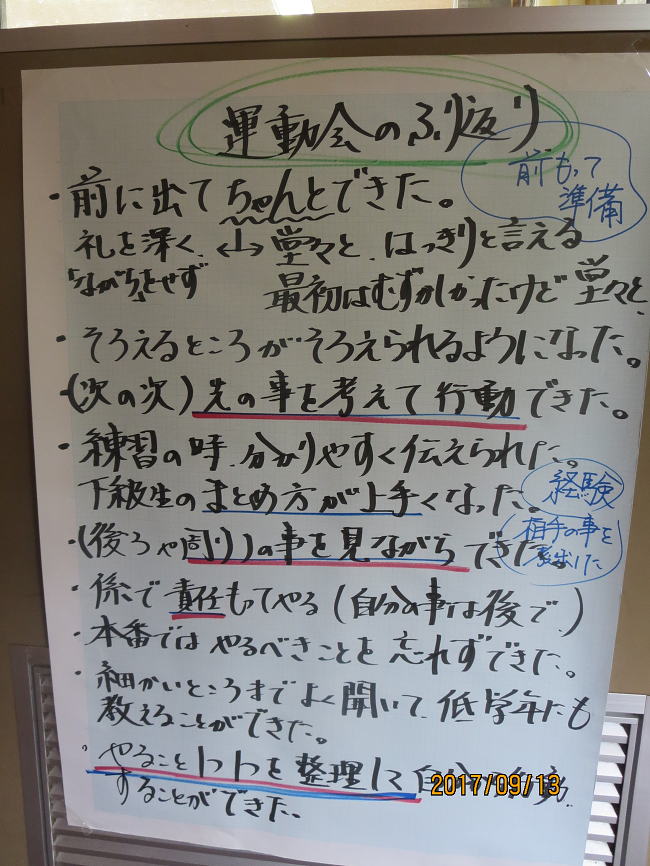 運動会のふり返り
前もって
準備
・前に出てちゃんとできた。
礼を深く、←山→堂々と、はっきりと言える
「ながら」とせず 最初はむずかしかったけど堂々と、
・そろえるところがそろえられるようになった。
・(次の次)先の事を考えて行動できた。
・練習の時、分かりやすく伝えられた。
下級生のまとめ方が上手くなった。
経験
相手の事を
・(後ろや周り)の事を見ながらできた。
・係で責任もってやる(自分の事は後で)
・本番ではやるべきことを忘れずできた。
・細かいところまでよく聞いて、低学年にも
教えることができた。
・やること1つ1つを整理して自分で
することができた。
2017/09/13